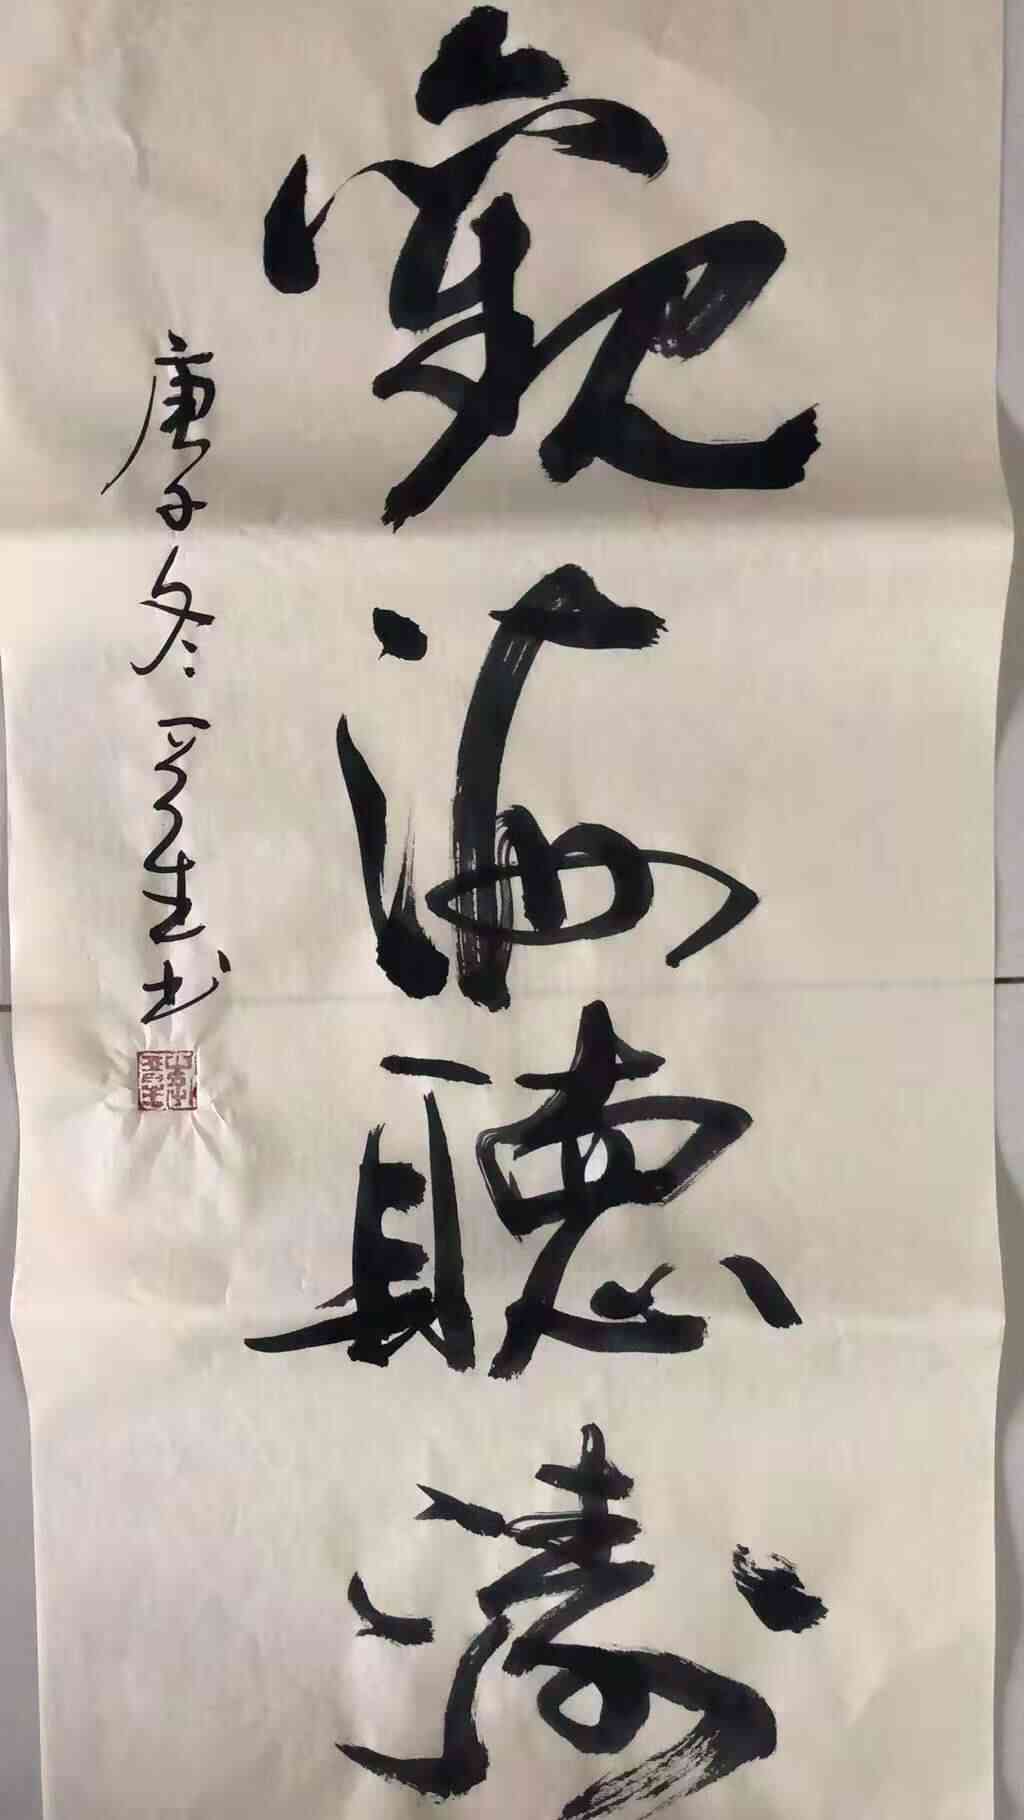 觀海聽濤
庚子冬晉生书